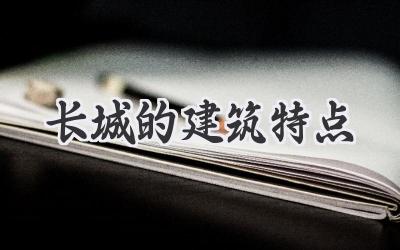 长城的建筑特点